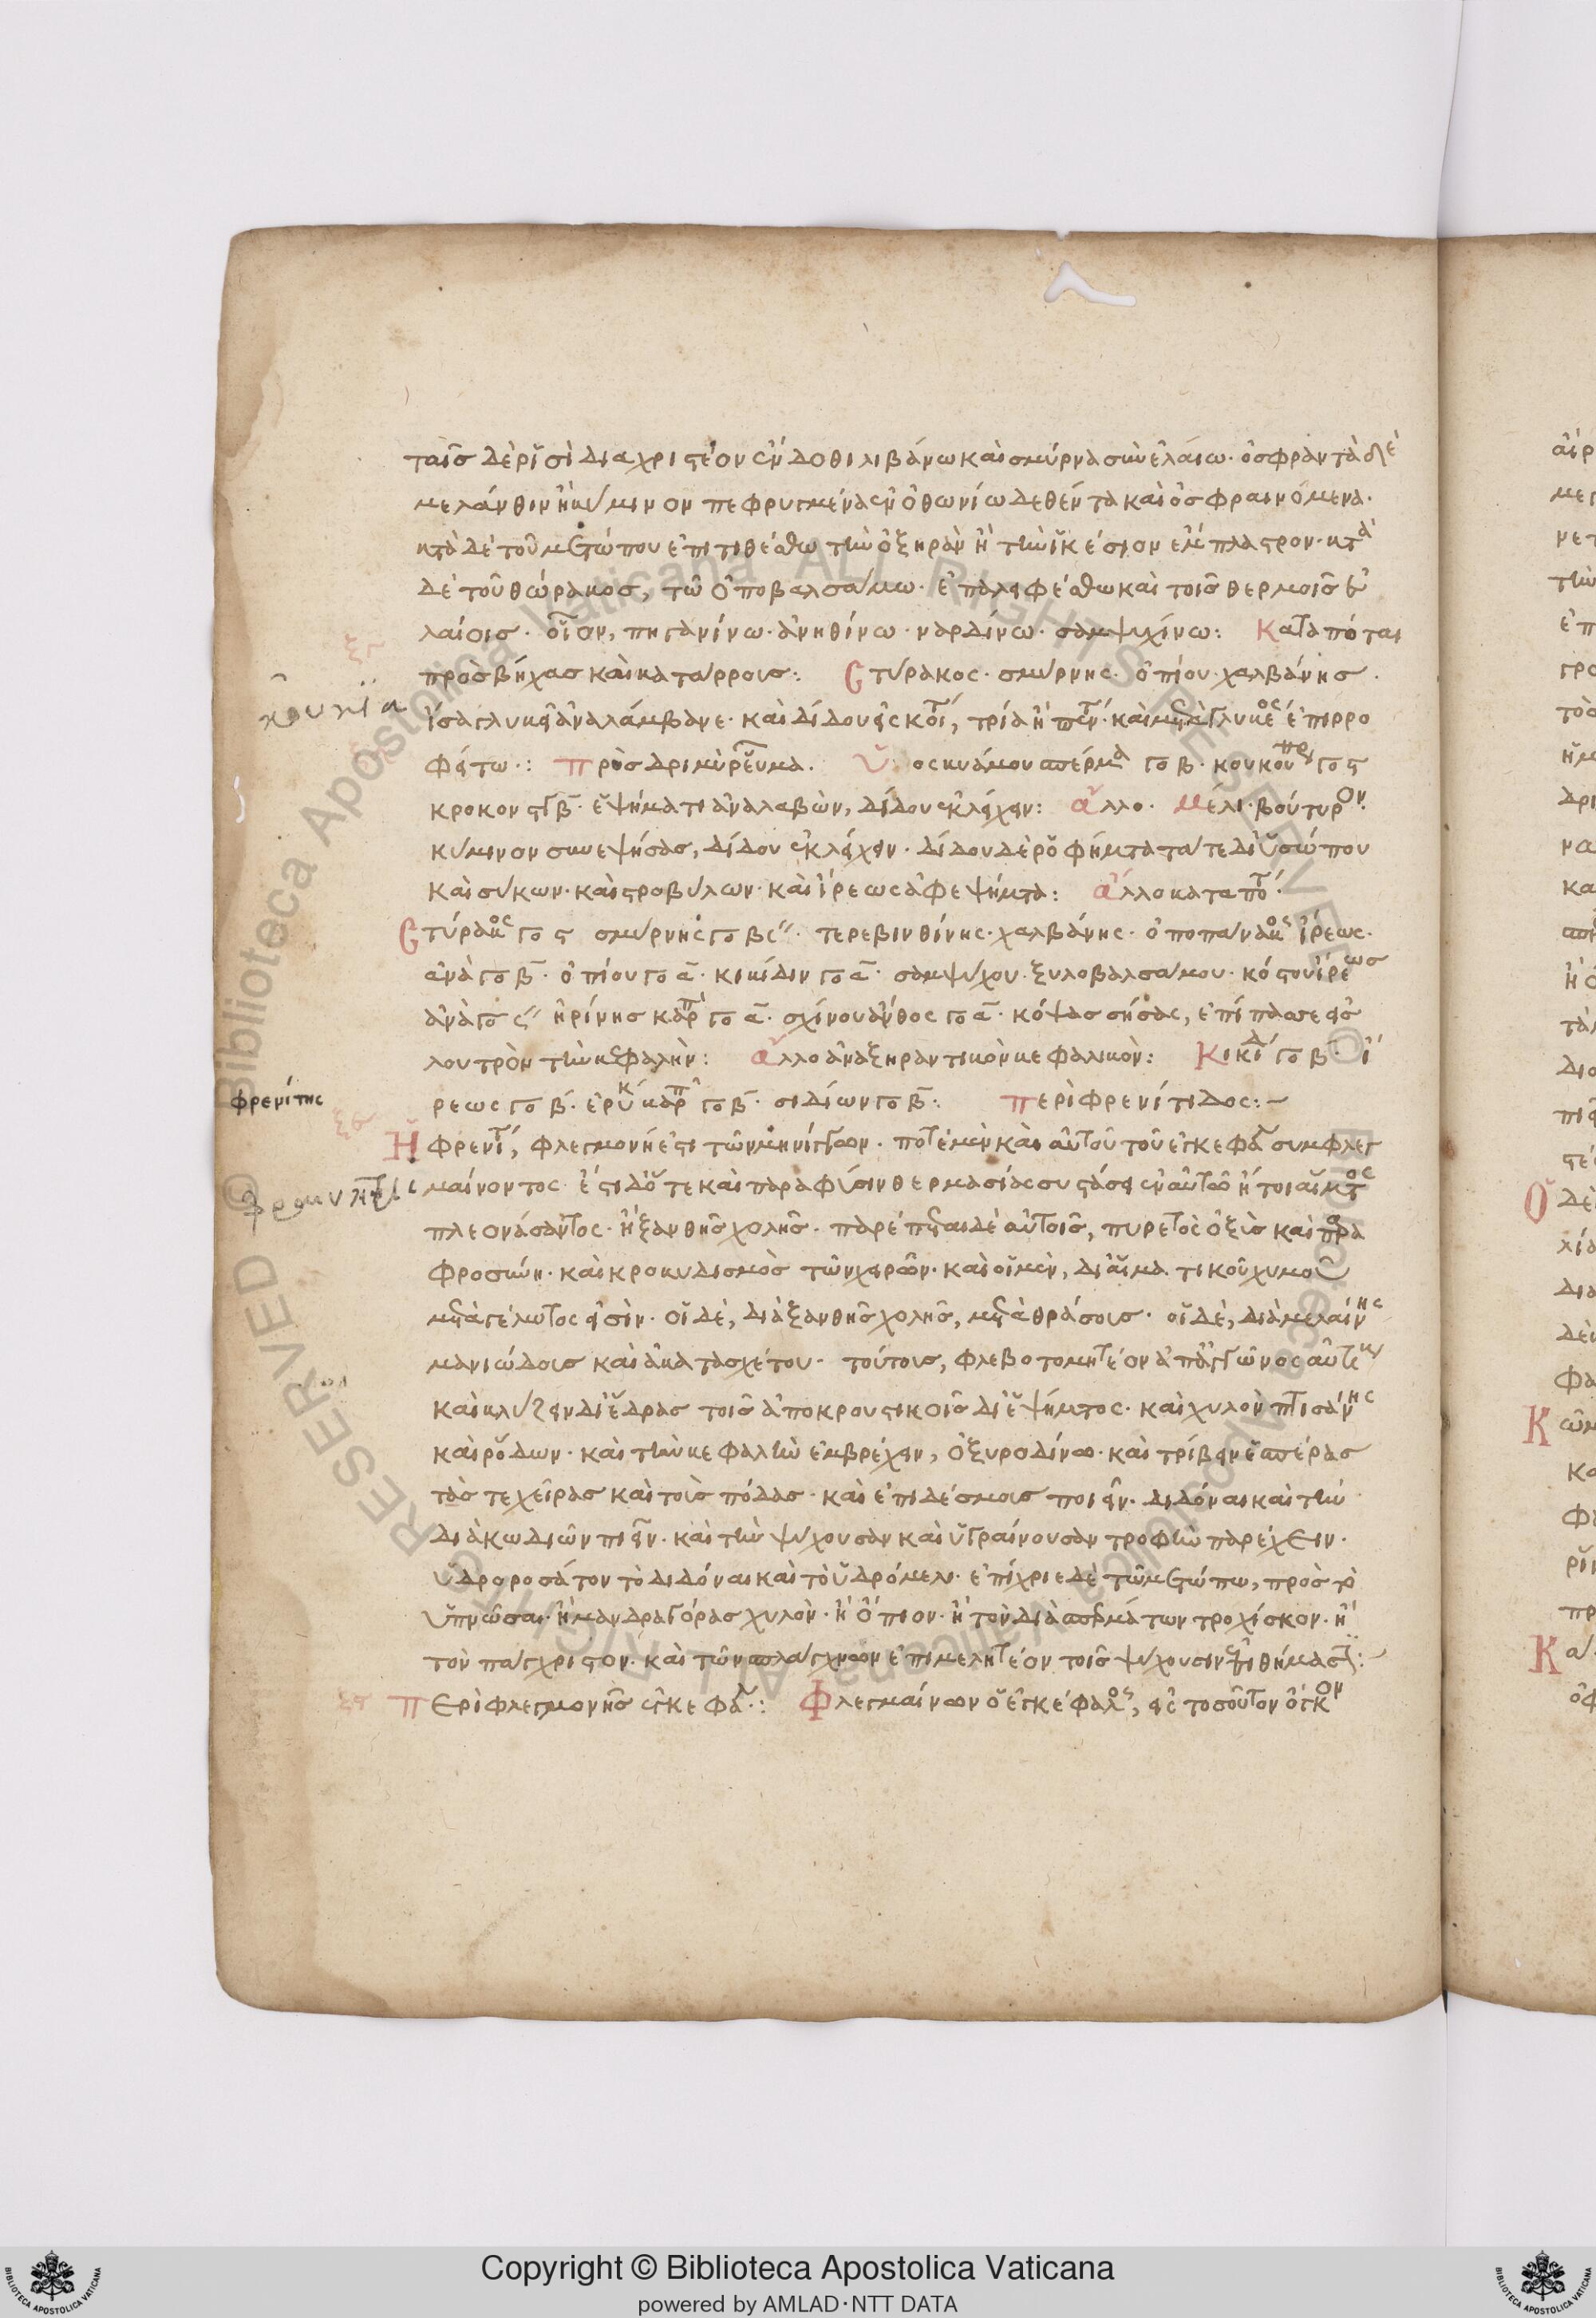 ταῖς δὲ ῥισὶ διαχριστέον ἔνδοθι λιβάνω καὶ σμύρνα σὺν ἐλαίω· ὀσφραντὰ δὲ
μελάνθιν ἢ κύμινον πεφρυγμένα ἐν ὀθωνίω δεθέντα καὶ ὀσφραινόμενα·
κατὰ δὲ τοῦ μετώπου ἐπιτιθέσθω τὴν ὀξηρὰν ἢ τὴν ἰκέσιον ἔμπλαστρον· κατὰ
δὲ τοῦ θώρακος, τῶ ὀποβαλσάμω· ἐπαλειφέσθω καὶ τοῖς θερμοῖς ἐ
λαίοις· οἷον, πηγανίνω· ἀνηθίνω· ναρδίνω· σαμψυχίνω: Καταπόται
πρὸς βήχας καὶ κατάρρους: Στύρακος· σμύρνης· ὀπίου· χαλβάνης·
ἴσα γλυκεῖ ἀναλάμβανε· καὶ δίδου εἰς κοί, τρία ἢ πέν· καὶ μετὰ γλυκέος ἐπιρρο
φείτω·: Πρὸς δριμὺ ῥεῦμα· Ὑοσκυάμου σπέρμα γο β· κουκου γο ς
κρόκον β· ἑψήματι ἀναλαβὼν, δίδου ἐκλείχειν: Ἄλλο· Μέλι· βούτυρον·
κύμινον συνεψήσας, δίδου ἐκλείχειν· δίδου δὲ ῥοφήματα τά τε δι' ὑσώπου
καὶ σύκων· καὶ στροβύλων· καὶ ἴρεως ἀφεψήματα: Ἄλλο καταπότ·
Στύρακος γο ς σμύρνης γο β· τερεβινθίνης· χαλβάνης· ὀποπάνακος ἴρεως·
ἀνὰ γο β· ὀπίου γο α· κικίδιν γο α· σαμψύχου· ξυλοβαλσάμου· κόστου ἴρεως
ἀνὰ γο ἠρίνης καρπ γο α· σχίνου ἄνθος γο α· κόψας σήσας, ἐπίπασσε εἰς
λουτρὸν τὴν κεφαλὴν: Ἄλλο ἀναξηραντικὸν κεφαλικὸν: Κικίδ γο β· ἴ
ρεως γο β· ἐρυκ καρπ γο β· σιδίων γο β: Περὶ φρενίτιδος:
φρενίτης
Ἡ φρενῖτι, φλεγμονή ἐστι τῶν μηνίγγων· ποτὲ μὲν καὶ αὐτοῦ τοῦ ἐγκεφάλ συμφλεγ
μαίνοντος· ἔστι δ' ὅτε καὶ παρὰ φύσιν θερμασίας συστάσει ἐν αὐτῶ ἤτοι αἵματος
πλεονάσαντος· ἢ ξανθῆς χολῆς· παρέπεται δὲ αὐτοῖς, πυρετὸς ὀξὺς καὶ παρα
φροσύνη· καὶ κροκυδισμὸς τῶν χειρῶν· καὶ οἱ μὲν, δι' αἱματικοῦ χυμοῦ
μετὰ γέλωτος εἰσὶν· οἱ δὲ, διὰ ξανθῆς χολῆς, μετὰ θράσους· οἱ δὲ, διὰ μελαίνης
μανιώδους καὶ ἀκατασχέτου· τούτοις, φλεβοτομητέον ἀπ' ἀγγῶνος αὐτίκ
καὶ κλύζειν δι' ἕδρας τοῖς ἀποκρουστικοῖς δι' ἑψήματος· καὶ χυλὸν πτισάνης
καὶ ῥόδων· καὶ τὴν κεφαλὴν ἐμβρέχειν, ὀξυροδίνω· καὶ τρίβειν ἑσπέρας
τάς τε χεῖρας καὶ τοὺς πόδας· καὶ ἐπιδέσμους ποιεῖν· διδόναι καὶ τὴν
διὰ κωδιῶν πιεῖν· καὶ τὴν ψύχουσαν καὶ ὑγραίνουσαν τροφὴν παρέχειν·
ὑδροροσάτον τὸ διδόναι καὶ τὸ ὑδρόμελι· ἐπίχριε δὲ τῶ μετώπω, πρὸς τὸ
ὑπνῶσαι· ἢ μανδραγόρας χυλὸν· ἢ ὄπιον· ἢ τὸν διὰ σπερμάτων τροχίσκον· ἢ
τὸν πάγχριστον· καὶ τῶν σπλάγχνων ἐπιμελητέον τοῖς ψύχουσιν ἐπιθήμασι:
Περὶ φλεγμονῆς ἐγκεφάλ·: Φλεγμαίνων ὁ ἐγκέφαλος, εἰς τοσοῦτον ὄγκον
Copyright © Biblioteca Apostolica Vaticana
powered by AMLAD·NTT DATA